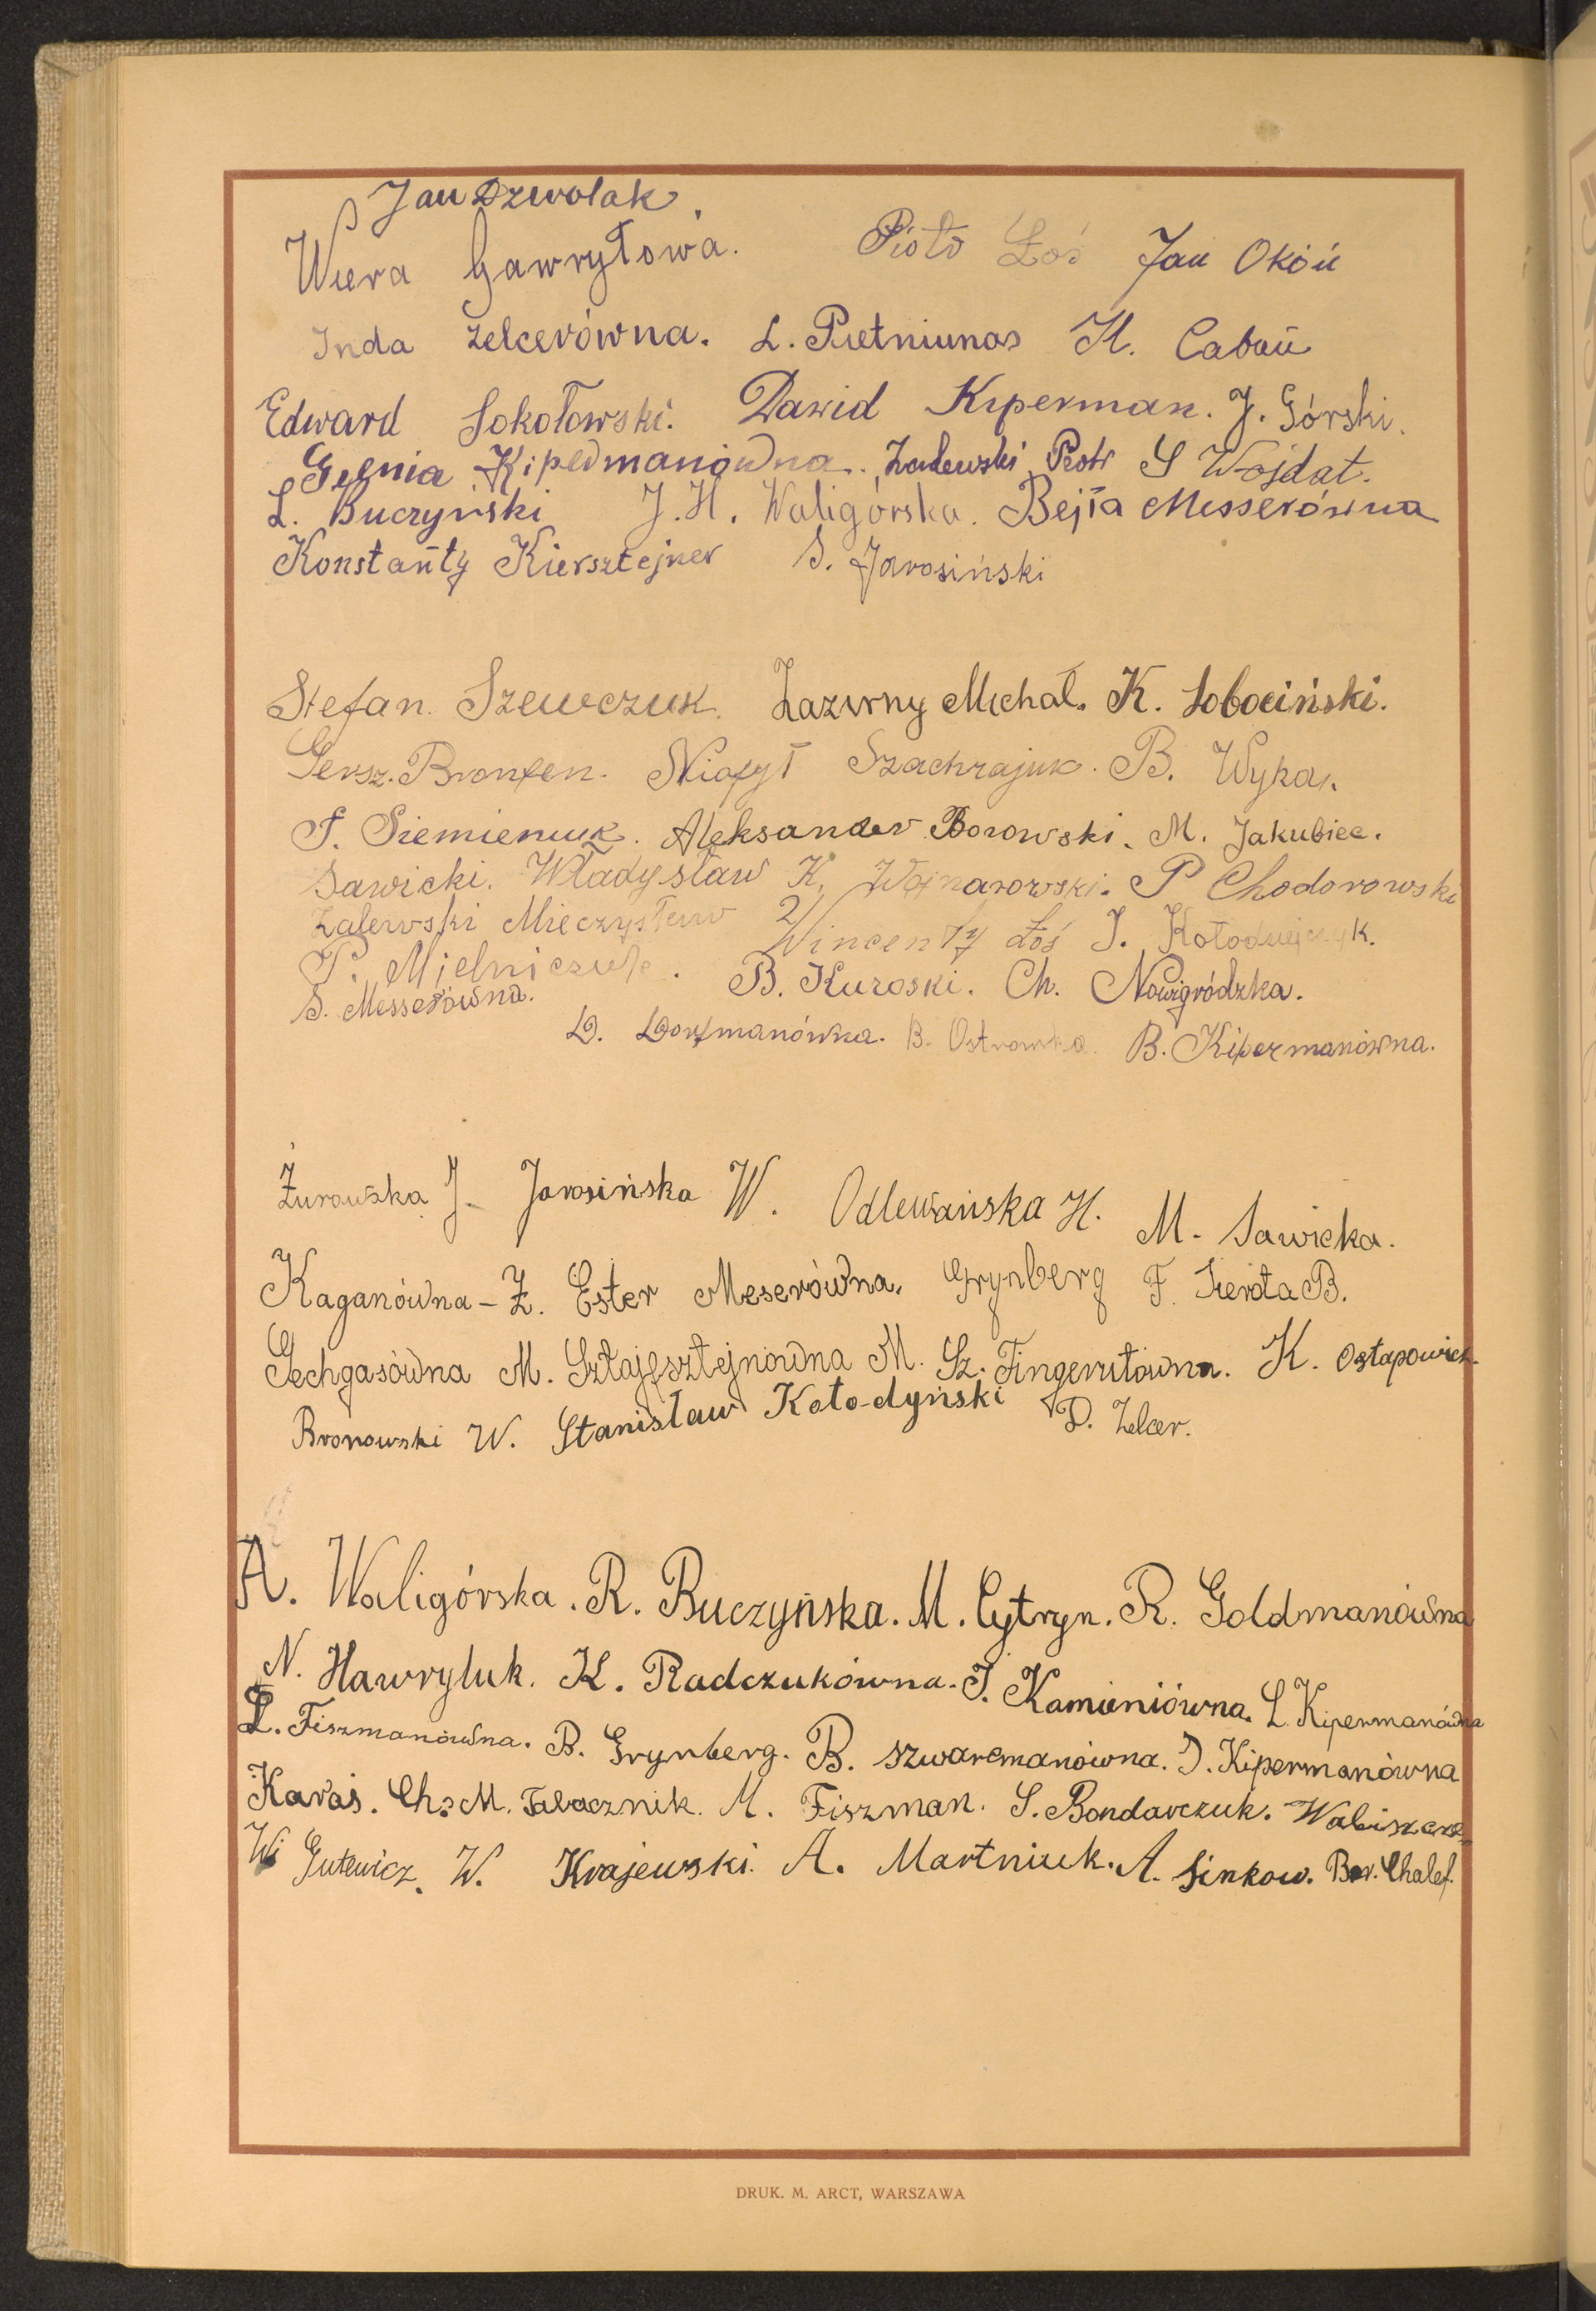 Jan Dzwolak.
Wiera Gawryłowa. Piotr Łoś Jan Okoń
Inda Zelcerówna. L. Pietniunas H. Cabań
Edward Sokołowski. Dawid Kiperman. J. Górski.
Gienia Kipermanówna. Zalewski Piotr S Wojdat.
L. Buczyński J. H. Waligórska. Bejła Messerówna
Konstanty Kiersztejner S. Jarosiński
Stefan Szewczuk. Łazurny Michał. K. Sobociński.
Gersz. Bronfen. Niofył Szachrajuk. B. Wyka.
F. Siemieniuk. Aleksander Borowski. M. Jakubiec.
Sawicki. Władysław K. Wojnarowski. P Chodorowski
Zalewski Mieczysław Wincenty Łoś J. Kołodziejczyk.
P. Mielniczuk. B. Kuroski. Ch. Nowogródzka.
S. Messerówna.
D. Dorfmanówna. B. Ostrowska. B. Kipermanówna.
Żurowska J. Jarosińska W. Odlewańska H. M. Sawicka.
Kaganówna - Z. Ester Meserówna. Grynberg F. Sierota B.
Gechgasówna M. Sztajersztejnówna M. Sz. Fingerutówna. K. Ostapowicz.
Bronowski W. Stanisław Koło-dyński D. Zelcer.
A. Waligórska. R. Buczyńska. M. Cytryn. R. Goldmanówna
N. Hawryluk. K. Radczukówna. J. Kamieniówna. L. Kipermanówna
L. Fiszmanówna. B. Grynberg. B. Szwarcmanówna. D. Kipermanówna
Karaś. Ch. M. Tabacznik. M. Fiszman. S. Bondarczuk.
W. Gutewicz. W. Krajewski. A. Martniuk. A. Sinkow. Ber. Chalef.
DRUK. M. ARCT, WARSZAWA